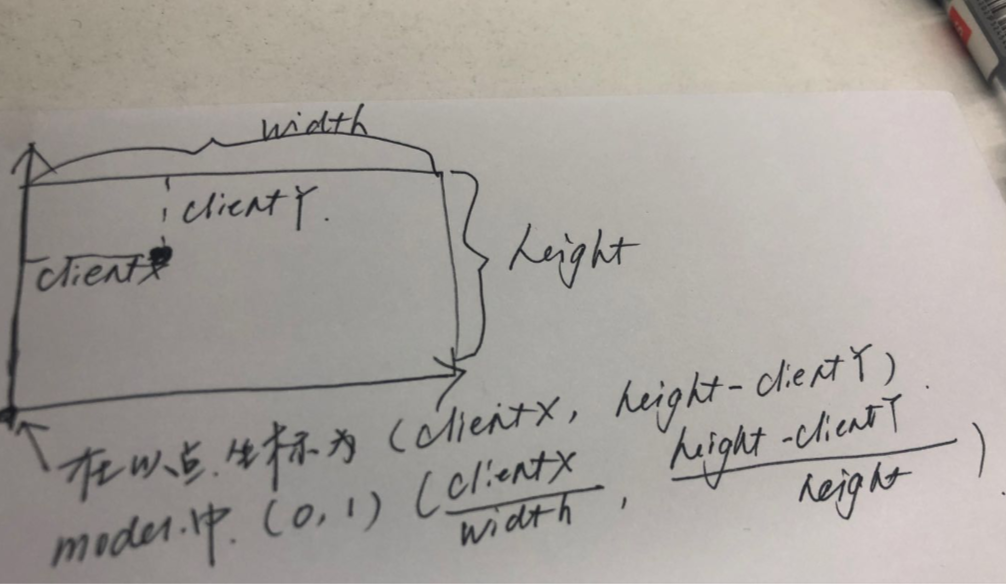 width
clientY.
clientX
height
在以点.坐标为 (clientX, height-clientY).
model.中. (0,1) (clientX/width, height-clientY/height)